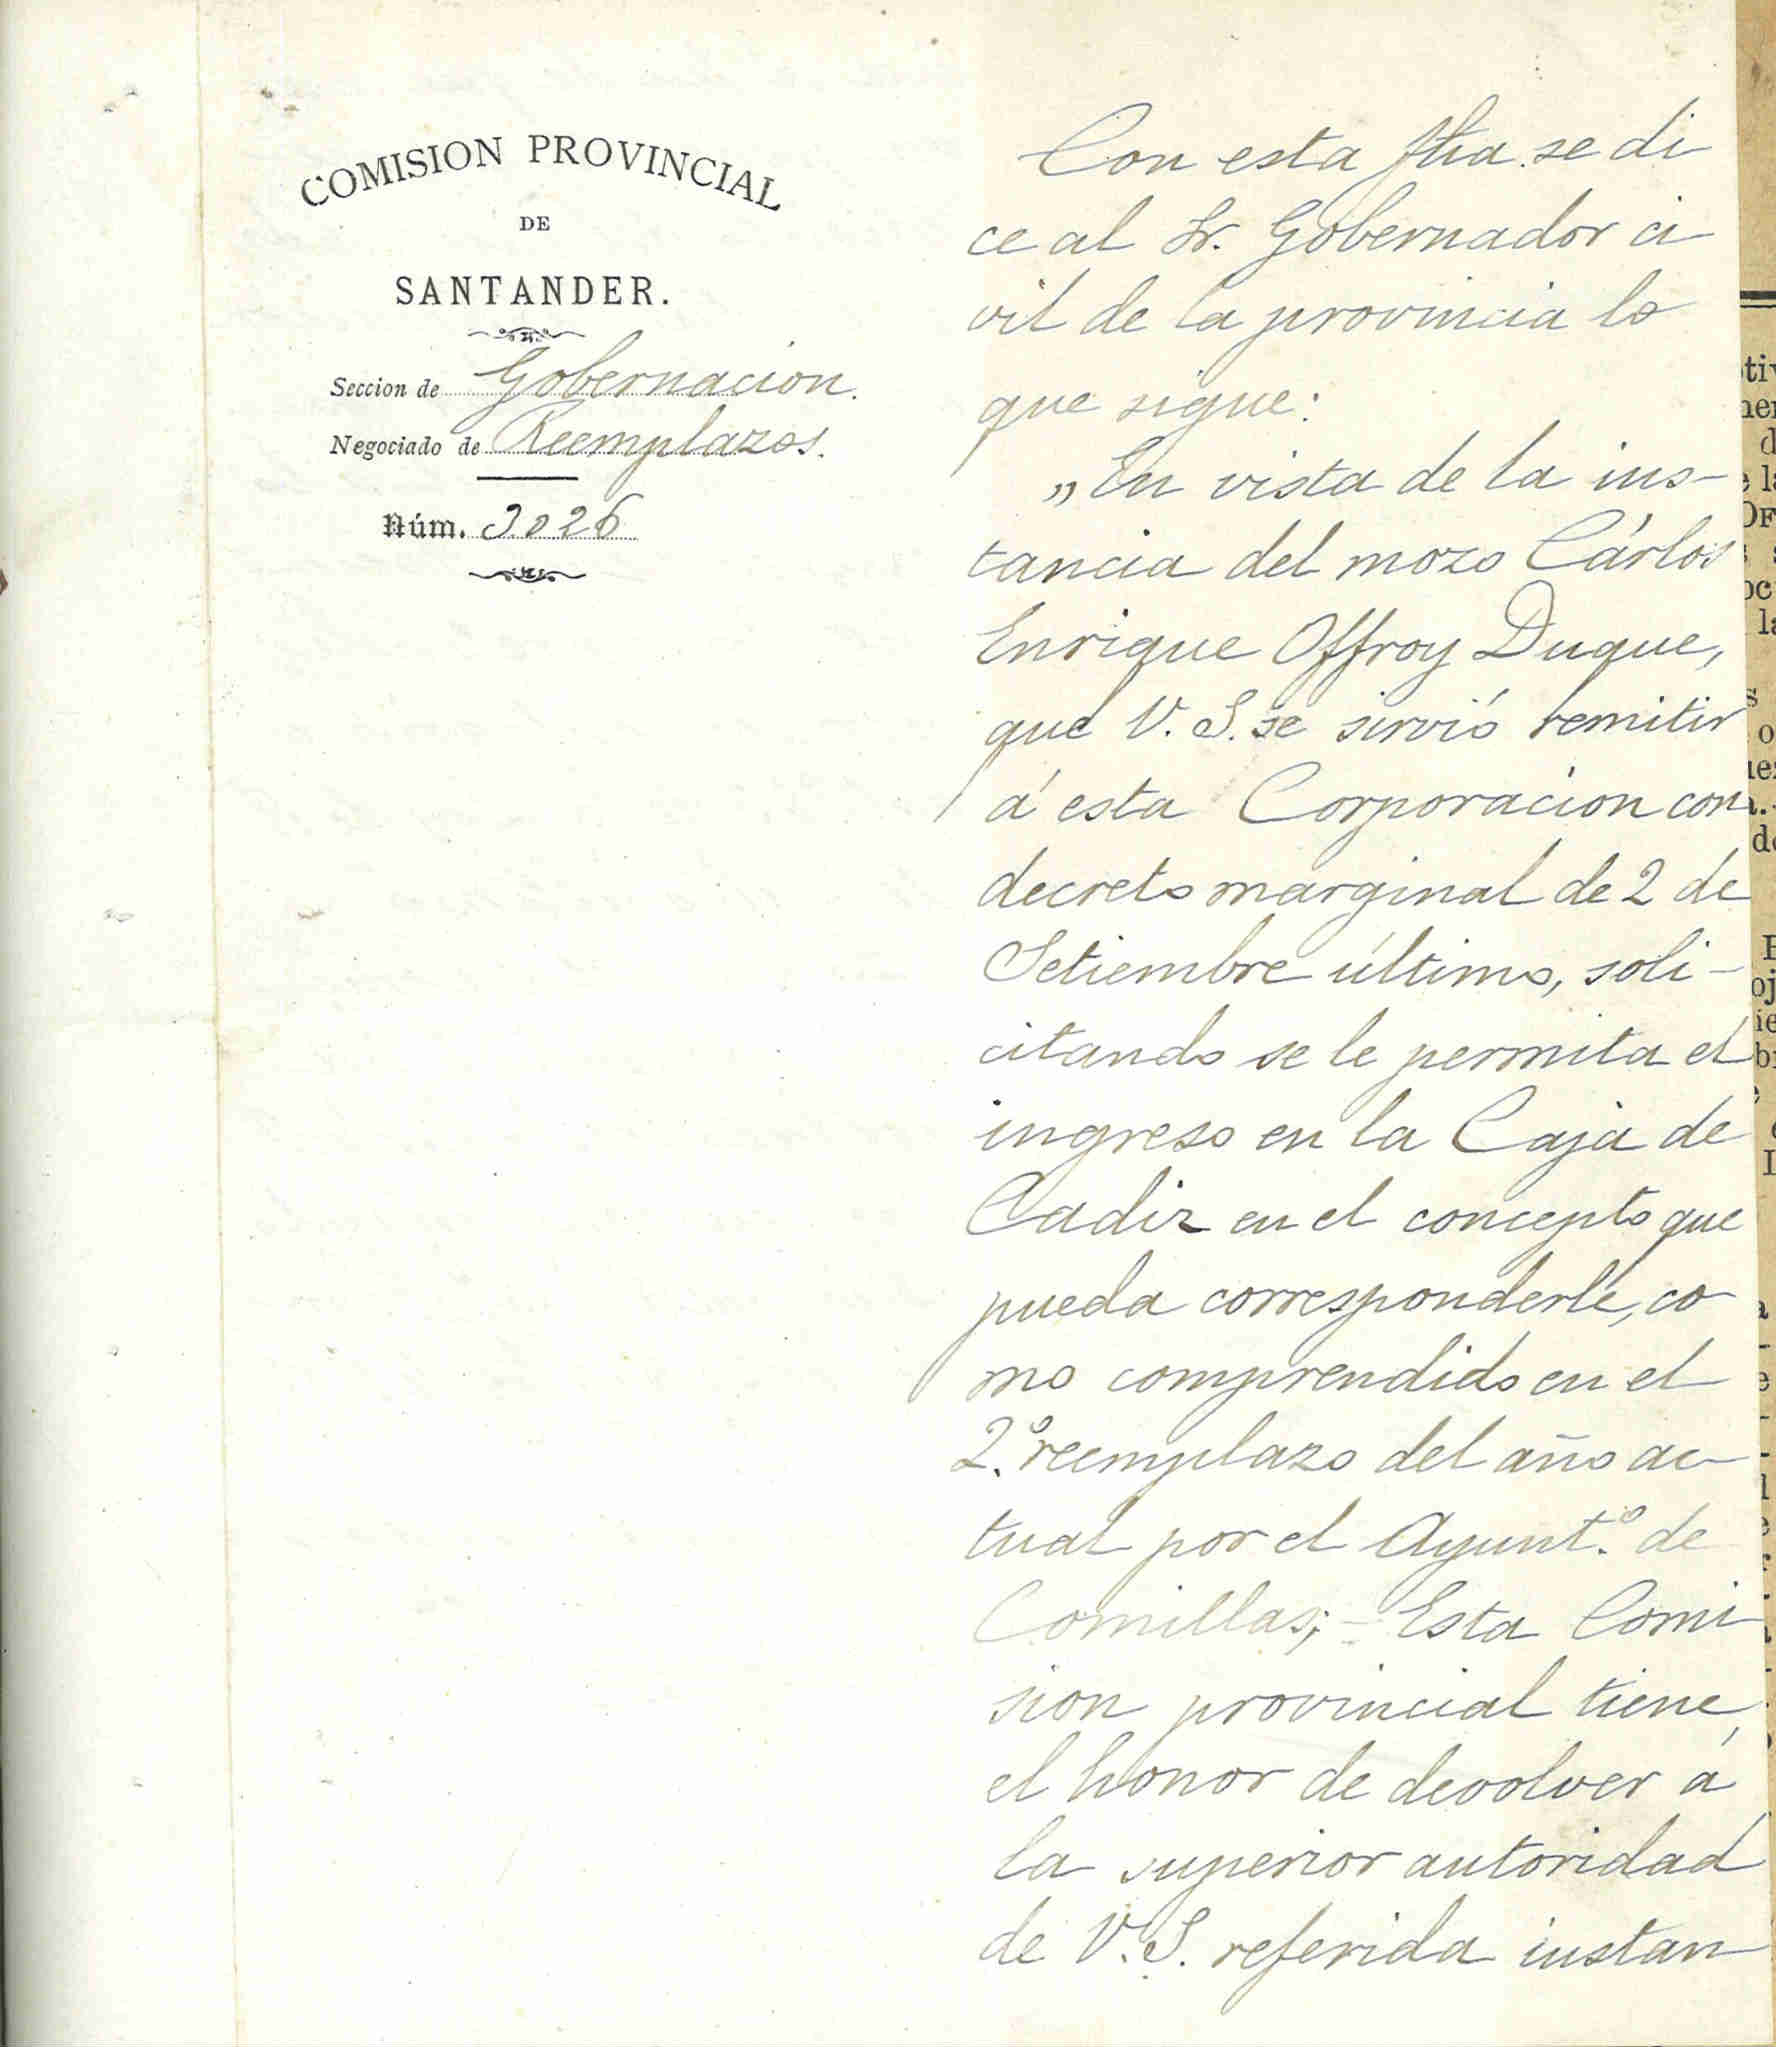 COMISION PROVINCIAL
DE
SANTANDER.
Seccion de Gobernacion.
Negociado de Reemplazos.
Núm. 3026
Con esta fha. se di
ce al Sr. Gobernador ci
vil de la provincia lo
que sigue:
„En vista de la ins-
tancia del mozo Cárlos
Enrique Offroy Duque,
que V. S. se sirvió remitir
á esta Corporacion con
decreto marginal de 2 de
Setiembre último, soli-
citando se le permita el
ingreso en la Caja de
Cadiz en el concepto que
pueda corresponderle, co
mo comprendido en el
2.º reemplazo del año ac
tual por el Ayunt.º de
Comillas; - Esta Comi
sion provincial tiene
el honor de devolver á
la superior autoridad
de V. S. referida instan